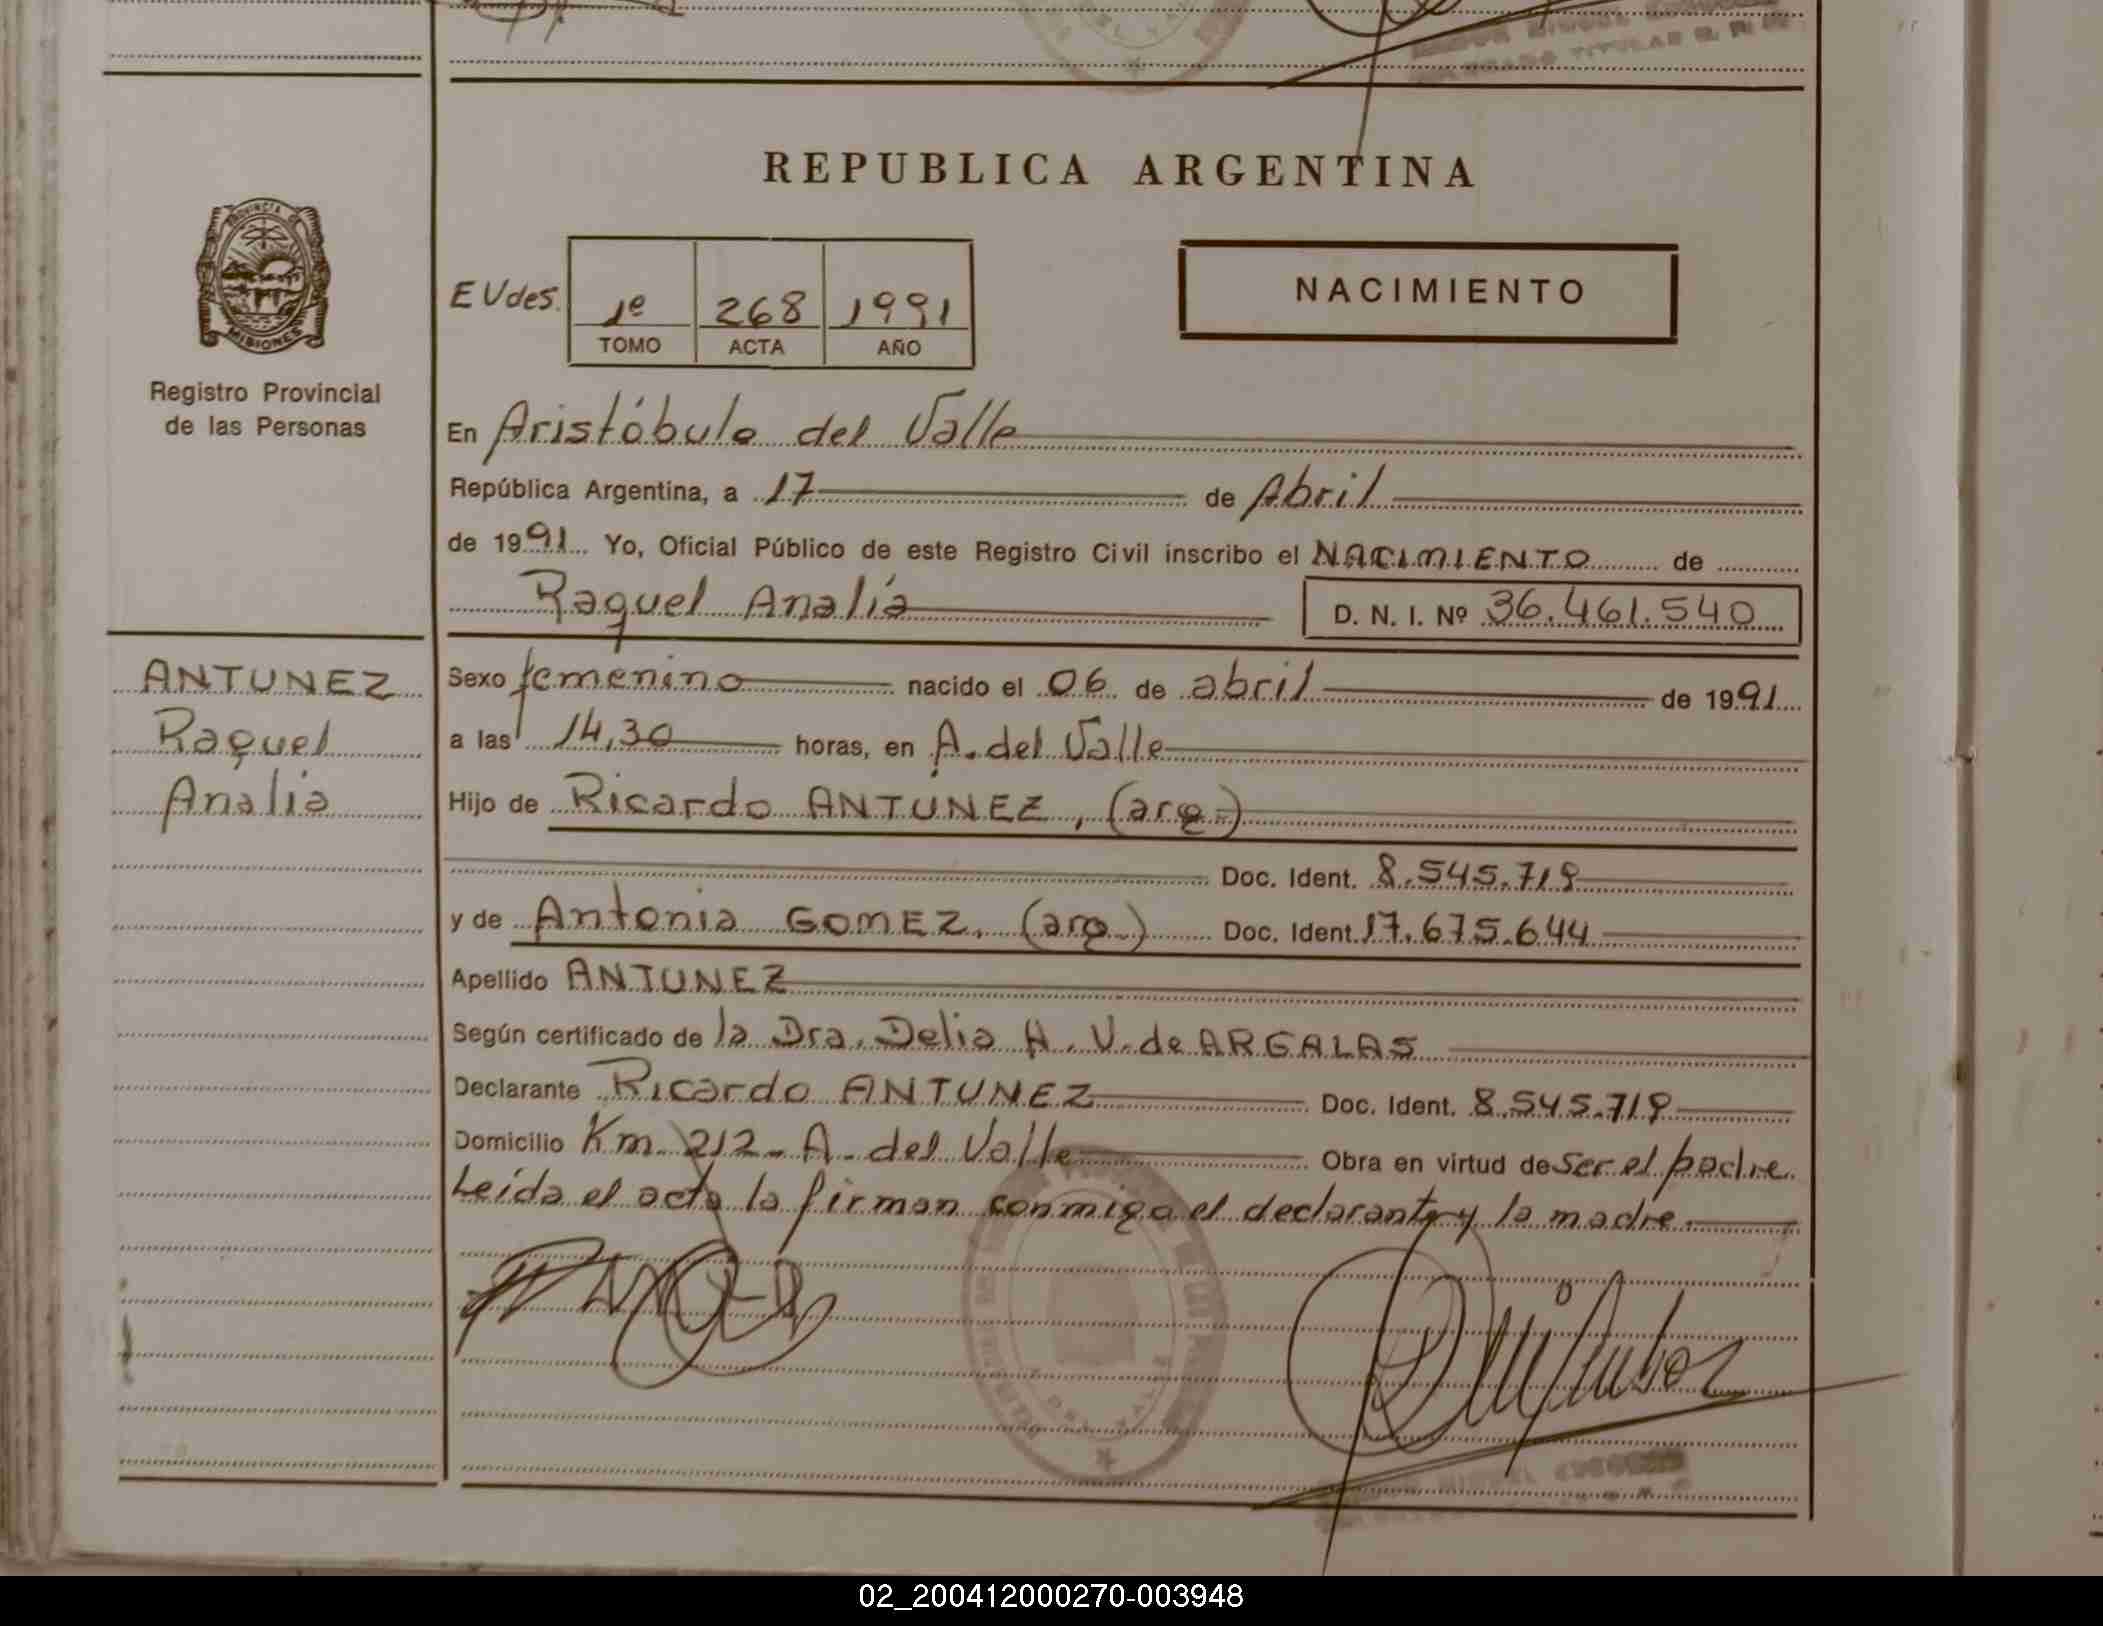 REPUBLICA ARGENTINA
PROVINCIA DE
MISIONES
Registro Provincial
de las Personas
E Udes. 1º 268 1991
TOMO ACTA AÑO
NACIMIENTO
En Aristóbulo del Valle
República Argentina, a 17 de Abril
de 1991 Yo, Oficial Público de este Registro Civil inscribo el NACIMIENTO de
Raquel Analía
D. N. I. Nº 36.461.540
ANTUNEZ
Raquel
Analia
Sexo femenino nacido el 06 de abril de 1991
a las 14,30 horas, en A. del Valle
Hijo de Ricardo ANTUNEZ, (arg.)
Doc. Ident. 8.545.719
y de Antonia GOMEZ, (arg.) Doc. Ident. 17.675.644
Apellido ANTUNEZ
Según certificado de la Dra. Delia H. V. de ARGALAS
Declarante Ricardo ANTUNEZ Doc. Ident. 8.545.719
Domicilio Km. 212- A. del Valle Obra en virtud de ser el padre.
Leída el acta la firman conmigo el declarante y la madre.
02_200412000270-003948